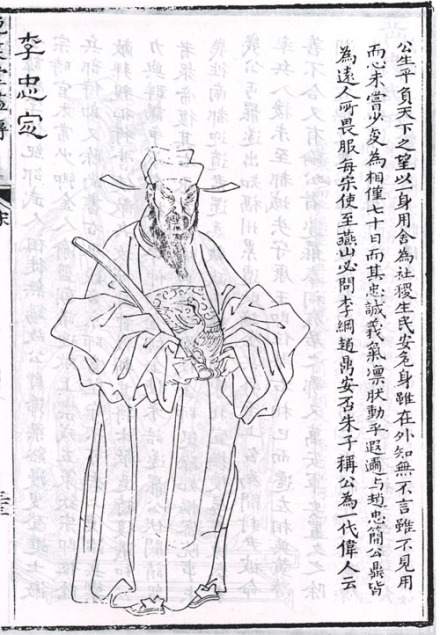 公生平負天下之望以一身用舍為社稷生民安危身雖在外知無不言雖不見用
而心未嘗少變為相僅七十日而其忠誠義氣凜狀動乎遐邇与趙忠簡公鼎皆
為遠人所畏服每宋使至燕山必問李綱趙鼎安否朱子稱公為一代偉人云
李忠定